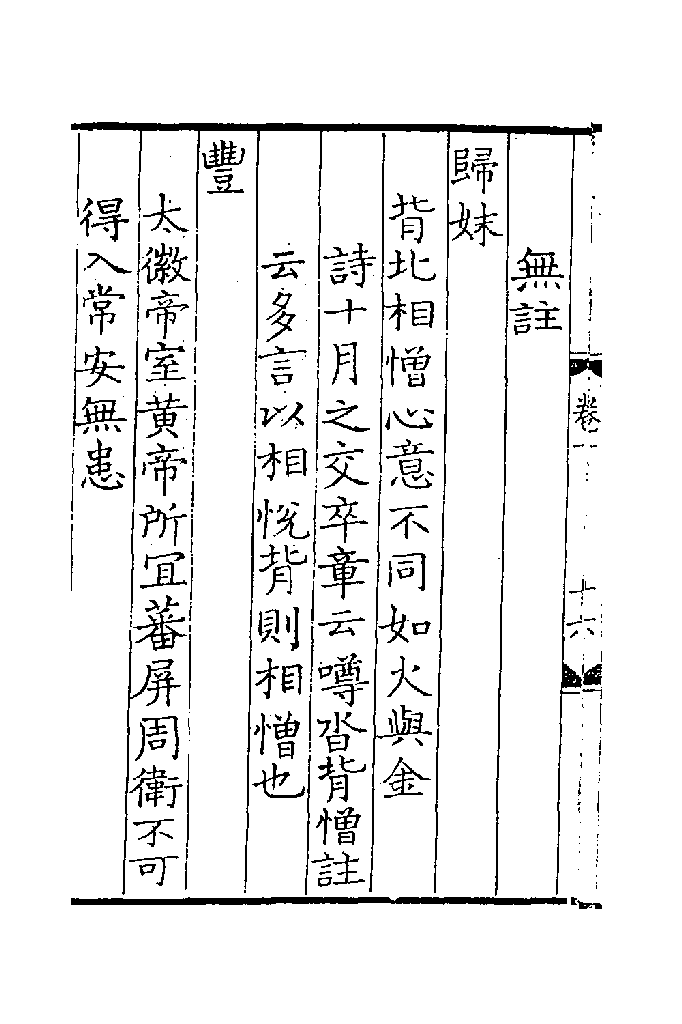 卷一 十六
無註
歸妹
背北相憎心意不同如火與金
詩十月之交卒章云噂沓背憎註
云多言以相悅背則相憎也
豐
太微帝室黃帝所宜蕃屏周衛不可
得入常安無患